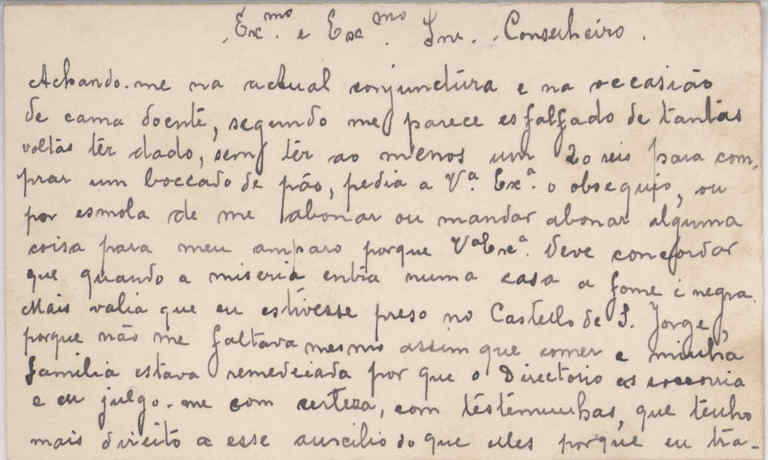 Ex.mo e Exmo. Snr. Conselheiro.
Achando-me na actual conjunctura e na occasião
de cama doente, segundo me parece esfalfado de tantas
voltas têr dado, sem têr ao menos um 20 reis para com-
prar um boccado de pão, pedia a V.ª Ex.ª o obsequio, ou
por esmola de me abonar ou mandar abonar alguma
coisa para meu amparo porque VªExª. deve concordar
que quando a miseria entra numa casa a fome é negra.
Mais valia que eu estivesse preso no Castello de S. Jorge,
porque não me faltava mesmo assim que comer e minha
familia estava remedeiada por que o Directorio os soccorria
e eu julgo-me com certeza, com testemunhas, que tenho
mais direito a esse auxcilio do que elles porque eu tra-